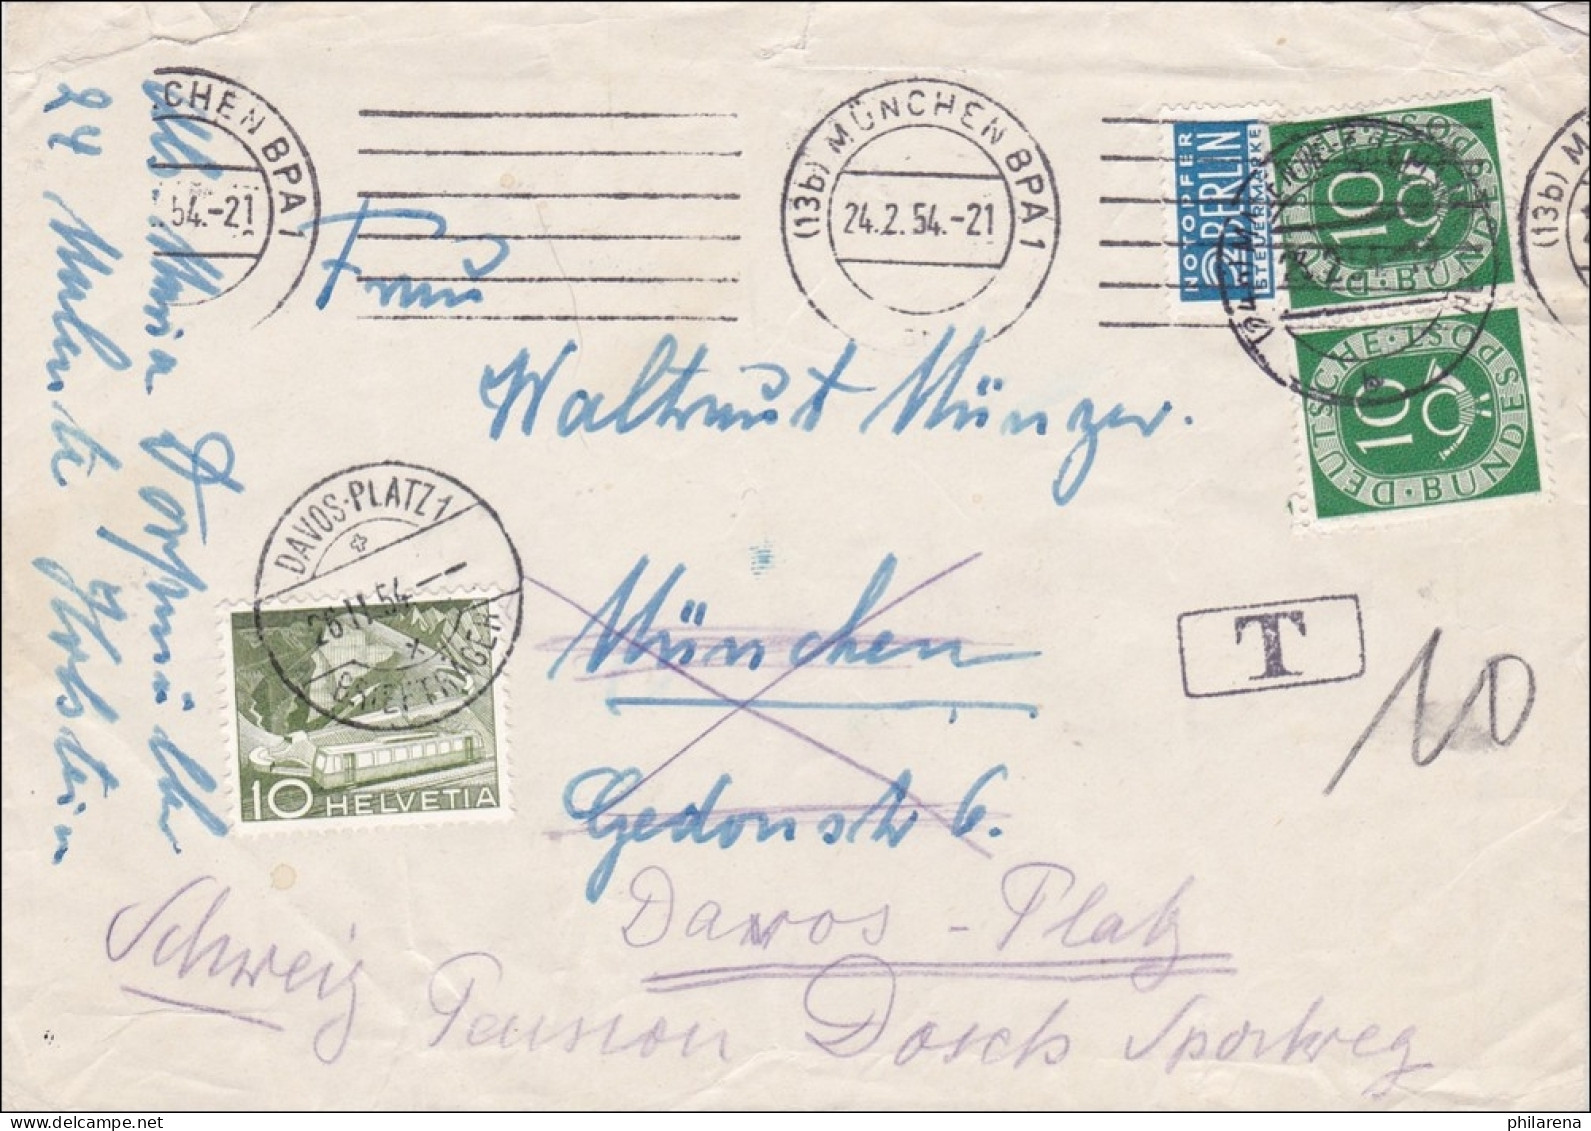 CHEN BPA 1
.54.-21
(13b) MÜNCHEN BPA 1
24.2.54.-21
(13b) M
NOTOPFER
2 BERLIN
STEUERMARKE
DEUTSCHE BUNDESPOST
10
DEUTSCHE BUNDESPOST
10
Frau
Waltraut Münzer.
München
Gedonstr 6.
DAVOS-PLATZ 1
26.II.54
BRIEFTRÄGER
10 HELVETIA
T
10
Davos - Platz
Schweiz Pension Dosch Sportweg
Maria
24
Holstein
philarena.com